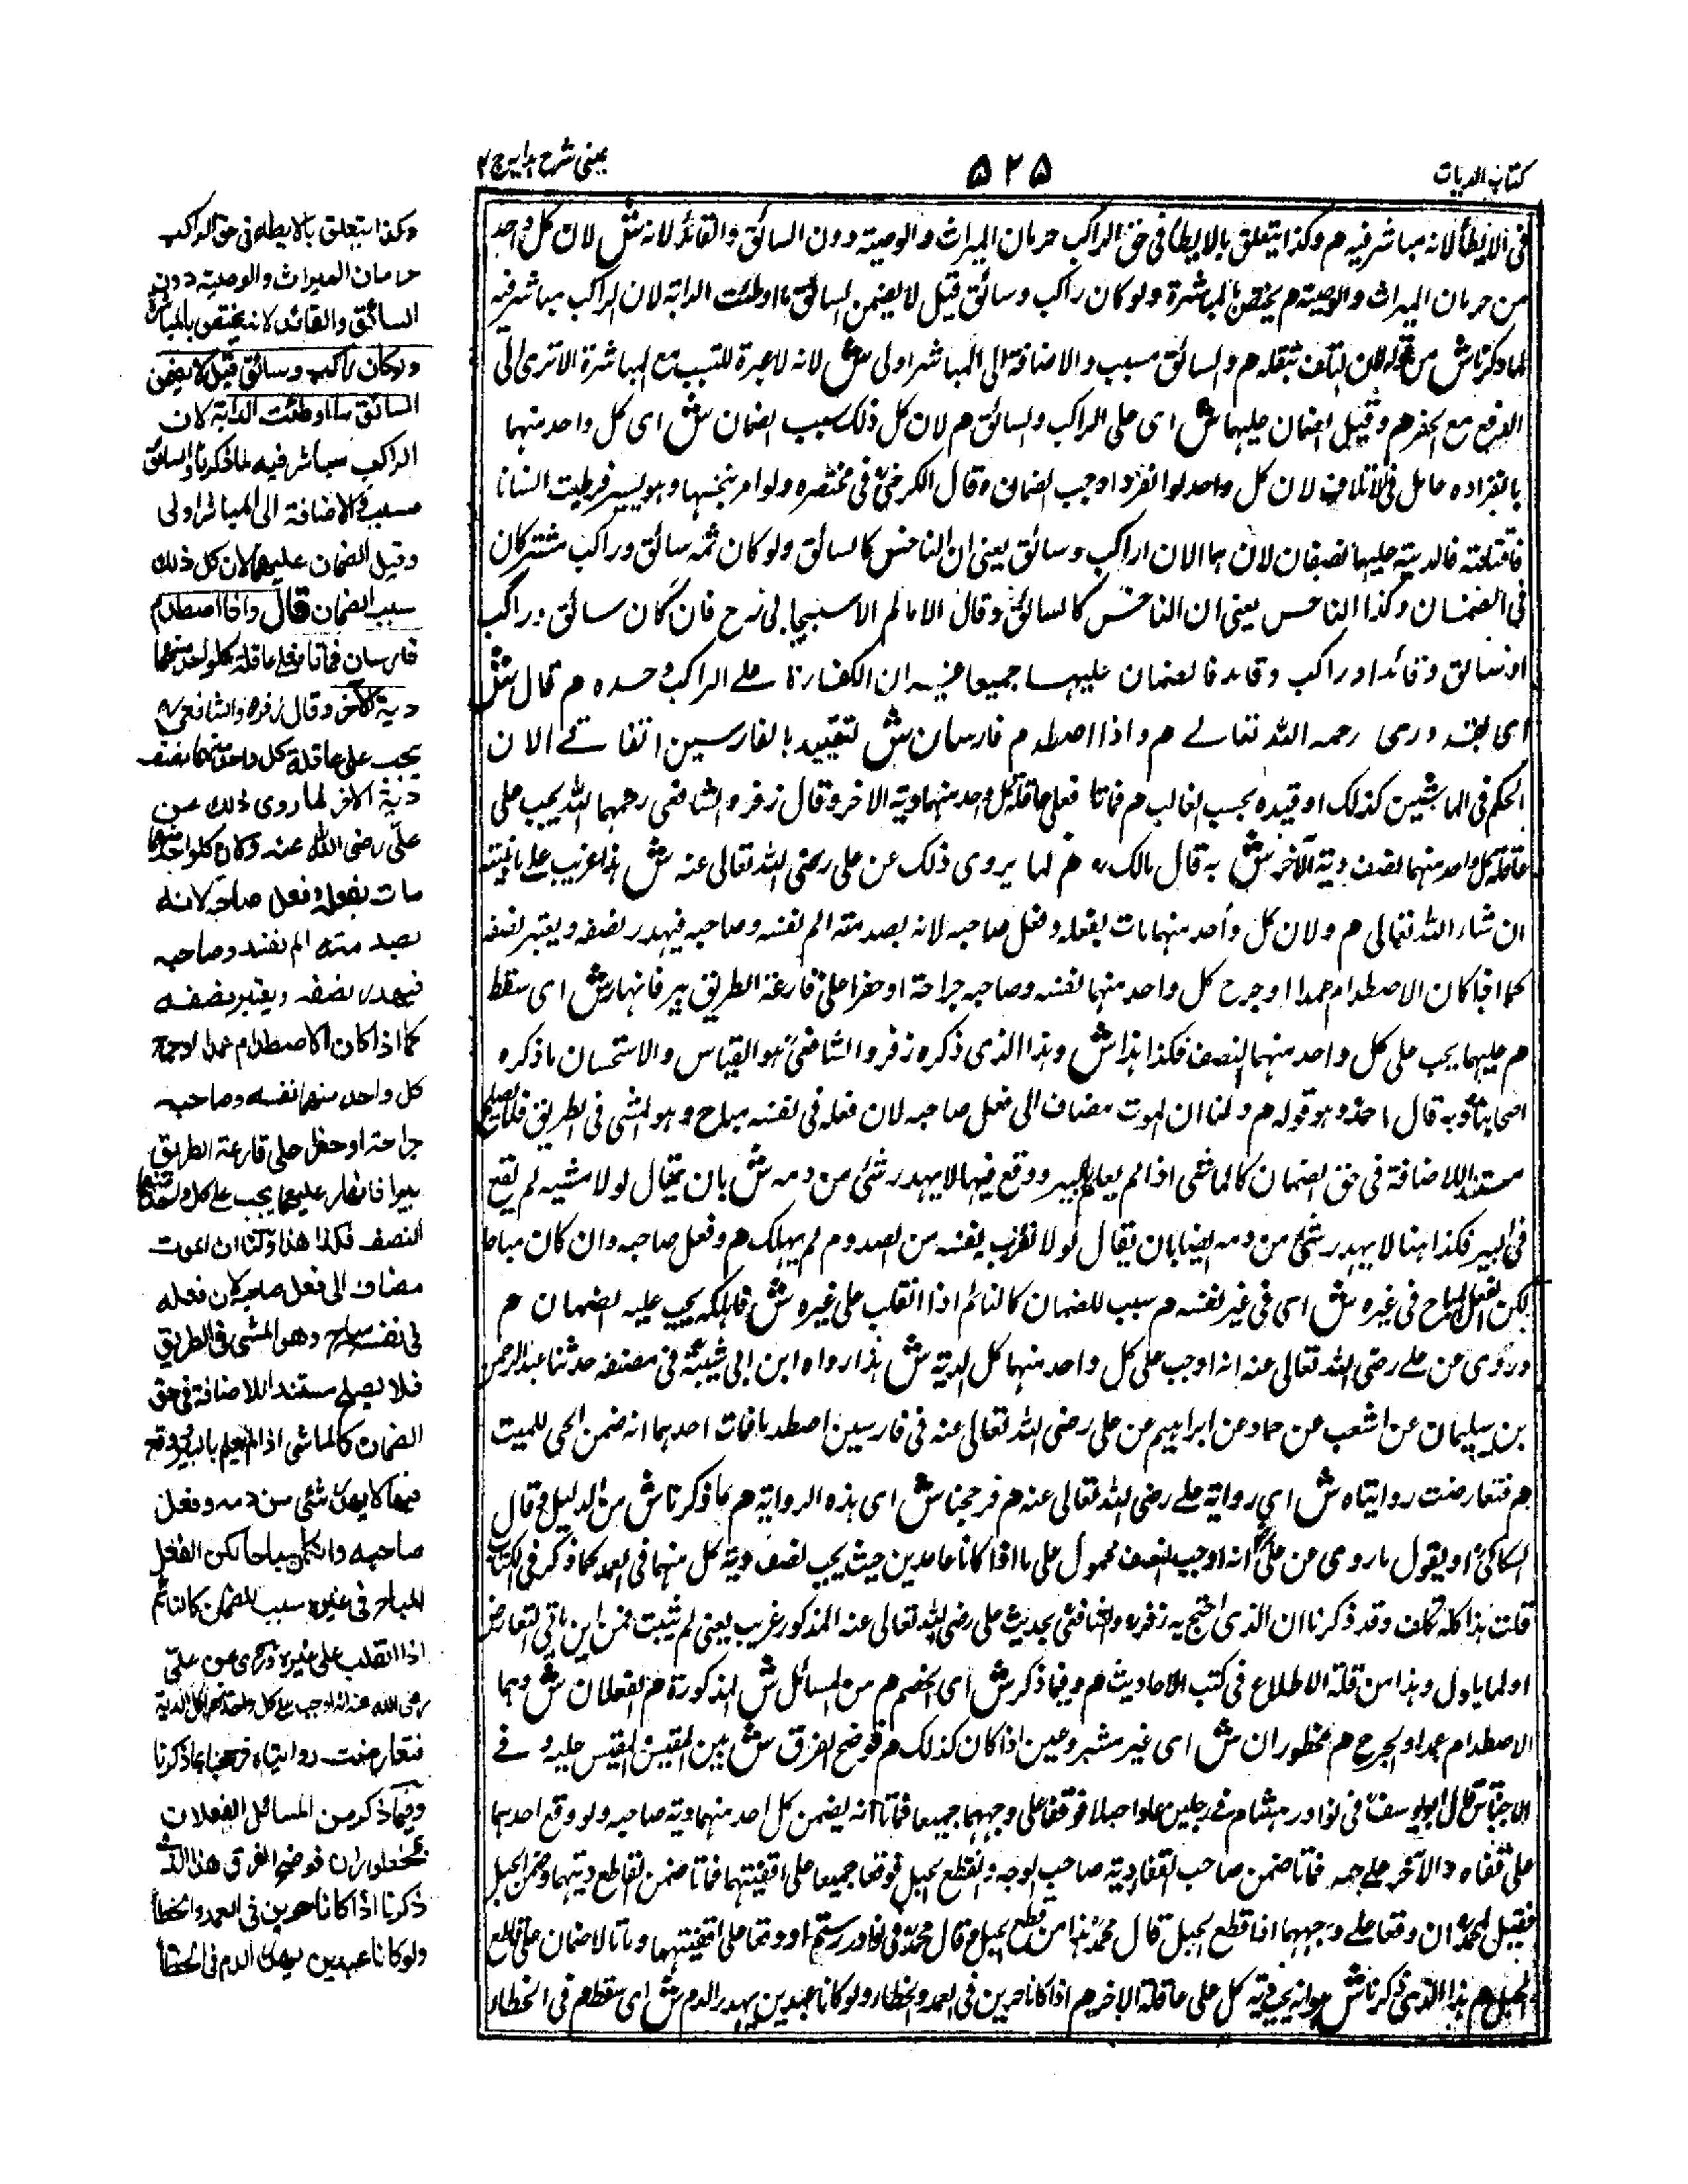 كتاب الديات
۵۲۵
عینی شرح ہدایہ ج ۴
فى الايطأ لانه مباشر فيه م وكذا يتعلق بالايطأ فى حق الراكب حرمان الميراث والوصية دون السائق والقائد لانه ش لان كل واحد
من حرمان الميراث والوصية م يختص بالمباشرة ولو كان راكب وسائق قيل لا يضمن السائق ما اوطئت الدابة لان الراكب مباشر فيه
لما ذكرنا ش من قوله لان التلف بثقله م والسائق مسبب والاضافة الى المباشر اولى ش لانه لا عبرة للتسبب مع المباشرة الا ترى الى
الدفع مع الحفر م وقيل الضمان عليهما ش اى على الراكب والسائق م لان كل ذلك سبب الضمان ش اى كل واحد منهما
بانفراده عامل فى الاتلاف لان كل واحد لو انفرد اوجب الضمان وقال الكرخىؒ فى مختصره ولو امر بنخسها وهو يسير فوطيت انسانا
فاقتلته فالدية عليهما نصفان لان هما الان راكب وسائق يعنى ان الناخس كالسائق ولو كان ثمه سائق وراكب مشتركان
فى الضمان وكذا الناخس يعنى ان الناخس كالسائق وقال الامام الاسبيجابى فان كان سائق وراكب
او سائق وقائد او راكب وقائد فالضمان عليهما جميعا غير ان الكفارة على الراكب وحده م قال ش
اى القدورى رحمه الله تعالى م واذا اصطدم فارسان ش لتقييد بالفارسين اتفاقى الا ان
الحكم فى الماشيين كذلك او قيده بحسب الغالب م فماتا فعلى عاقلة كل واحد منهما دية الاخر وقال زفر والشافعى رحمهما الله يجب على
عاقلة كل واحد منهما نصف دية الآخر ش به قال مالك م لما يروى ذلك عن على رضى الله تعالى عنه ش هذا غريب على ما نبينه
ان شاء الله تعالى م ولان كل واحد منهما مات بفعله وفعل صاحبه لانه بصدمته الم نفسه وصاحبه فيهدر نصفه ويعتبر نصفه
كما اذا كان الاصطدام عمدا او جرح كل واحد منهما نفسه وصاحبه جراحة او حفرا على قارعة الطريق بير فانهار ش اى سقط
م عليهما يجب على كل واحد منهما النصف فكذا هذا ش وهذا الذى ذكره زفر والشافعىؒ هو القياس والاستحسان ما ذكره
اصحابنا وبه قال احمد وهو قوله م ولنا ان الموت مضاف الى فعل صاحبه لان فعله فى نفسه مباح وهو المشى فى الطريق فلا يصلح
مستندا للاضافة فى حق الضمان كالماشى اذا لم يعلم بالبير ووقع فيها لا يهدر شئ من دمه ش بان يقال لولا مشيه لم يقع
فى البير فكذا هنا لا يهدر شئ من دمه ايضا بان يقال لولا بنفسه من الصدوم لم يهلك م وفعل صاحبه وان كان مباحا
لكن الفعل المباح فى غيره ش اى فى غير نفسه م سبب للضمان كالنائم اذا انقلب على غيره ش فاهلكه يجب عليه الضمان م
وروى عن على رضى الله تعالى عنه انه اوجب على كل واحد منهما كل الدية ش هذا رواه ابن ابى شيبةؒ فى مصنفه حدثنا عبد الرحمن
بن سليمان عن اشعب عن حماد عن ابراهيم عن على رضى الله تعالى عنه فى فارسين اصطدما فمات احدهما انه ضمن الحى للميت
م فتعارضت روايتاه ش اى رواية على رضى الله تعالى عنه م فرجحنا ش اى هذه الرواية م بما ذكرنا ش من الدليل وقال
السكاكىؒ او يقول ما روى عن علىؓ انه اوجب النصف محمول على ما اذا كانا عامدين حيث يجب نصف دية كل منهما فى العمد كما ذكر فى الكتاب
قلت هذا كله تكلف وقد ذكرنا ان الذى احتج به زفر والشافعى بحديث على رضى الله تعالى عنه المذكور غريب يعنى لم يثبت فمن اين ياتى التعارض
او لما ياول وهذا من قلة الاطلاع فى كتب الاحاديث م وفيما ذكر ش اى الخصم م من المسائل ش المذكورة م الفعلان ش وهما
الاصطدام عمدا والجرح م محظوران ش اى غير مشروعين اذا كان كذلك م فوضح الفرق ش بين المقيس والمقيس عليه وفى
الاجناس قال ابو يوسفؒ فى نوادر هشام فى رجلين حبلا فوقعا على وجههما جميعا فماتا انه يضمن كل احد منهما دية صاحبه ولو وقع احدهما
على قفاه والآخر على وجهه فماتا ضمن صاحب القفا دية صاحب الوجه ولو انقطع الحبل فوقعا جميعا على اقفيتهما فماتا ضمن القاطع ديتهما وضمن الحبل
فقيل لمحمد ان وقعا على وجههما اذا قطع الحبل قال محمد هذا من قطع الحبل وقال محمد فى نوادر رستم او وقعا على اقفيتهما وماتا لا ضمان على قاطع
الحبل م هذا الذى ذكرنا ش هو انه يجب دية كل على عاقلة الاخر م اذا كانا حرين فى العمد والخطاء ولو كانا عبدين يهدر الدم ش اى سقط م فى الخطاء
وكذا يتعلق بالايطاء فى حق الراكب
حرمان الميراث والوصية دون
السائق والقائد لانه يختص بالمباشرة
ولو كان راكب وسائق قيل لا يضمن
السائق ما اوطئت الدابة لان
الراكب مباشر فيه لما ذكرنا والسائق
مسبب والاضافة الى المباشر اولى
وقيل الضمان عليهما لان كل ذلك
سبب الضمان قال واذا اصطدم
فارسان فماتا فعلى عاقلة كل واحد منهما
دية الآخر وقال زفر والشافعى
يجب على عاقلة كل واحد منهما نصف
دية الآخر لما روى ذلك عن
على رضى الله عنه ولان كل واحد منهما
مات بفعله وفعل صاحبه لانه
بصدمته الم نفسه وصاحبه
فيهدر نصفه ويعتبر نصفه
كما اذا كان الاصطدام عمدا او جرح
كل واحد منهما نفسه وصاحبه
جراحة او حفرا على قارعة الطريق
بيرا فانهار عليهما يجب على كل واحد منهما
النصف فكذا هذا ولنا ان الموت
مضاف الى فعل صاحبه لان فعله
فى نفسه مباح وهو المشى فى الطريق
فلا يصلح مستندا للاضافة فى حق
الضمان كالماشى اذا لم يعلم بالبير ووقع
فيها لا يهدر شئ من دمه وفعل
صاحبه وان كان مباحا لكن الفعل
المباح فى غيره سبب للضمان كالنائم
اذا انقلب على غيره وروى عن على
رضى الله عنه انه اوجب على كل واحد منهما كل الدية
فتعارضت روايتاه فرجحنا بما ذكرنا
وفيما ذكر من المسائل الفعلان
محظوران فوضح الفرق هذا الذى
ذكرنا اذا كانا حرين فى العمد والخطأ
ولو كانا عبدين يهدر الدم فى الخطأ